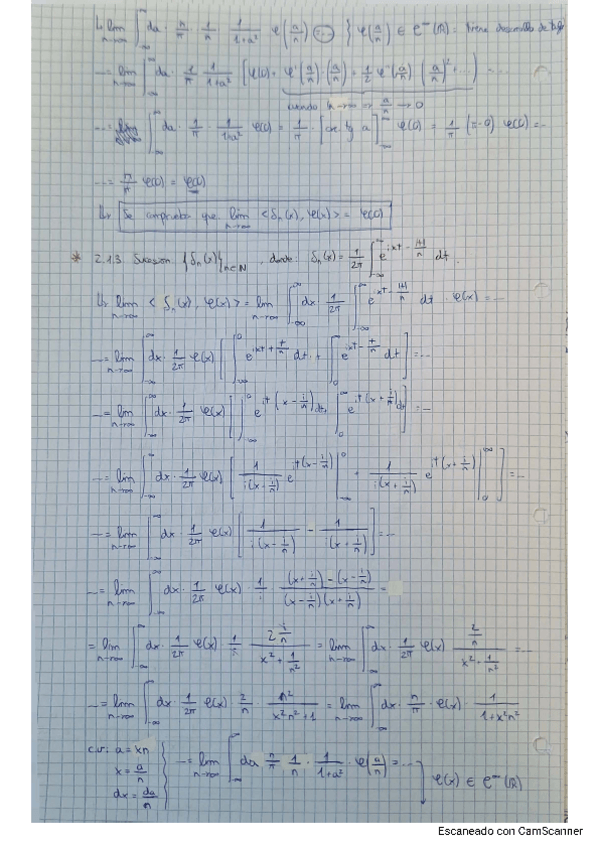 ↳ lim_{n→∞} ∫_{-∞}^{∞} da · n/π · 1/n · 1/(1+a²) φ(a/n) = ... } φ(a/n) ∈ C^∞(ℝ):
... = lim_{n→∞} ∫_{-∞}^{∞} da · 1/π · 1/(1+a²) [φ(0) + φ'(a/n)(a/n) + 1/2 φ''(a/n)(a/n)² + ...] ...
cuando n→∞ ⇒ a/n → 0
∫_{-∞}^{∞} da · 1/π · 1/(1+a²) φ(0) = 1/π · [arc tg a]_{-∞}^{∞} φ(0) = 1/π (π-0) φ(0) = ...
... = π/π φ(0) = φ(0)
↳ Se comprueba que lim_{n→∞} <δ_n(x), φ(x)> = φ(0)
* 2.13 Sucesión {δ_n(x)}_{n∈N}, donde: δ_n(x) = 1/2π ∫_{-∞}^{∞} e^{ixt - |t|/n} dt.
↳ lim_{n→∞} <δ_n(x), φ(x)> = lim_{n→∞} ∫_{-∞}^{∞} dx · 1/2π ∫_{-∞}^{∞} e^{ixt - |t|/n} dt · φ(x) = ...
... = lim_{n→∞} ∫_{-∞}^{∞} dx · 1/2π φ(x) [∫_{-∞}^{0} e^{ixt + t/n} dt + ∫_{0}^{∞} e^{ixt - t/n} dt] = ...
... = lim_{n→∞} ∫_{-∞}^{∞} dx · 1/2π φ(x) [∫_{-∞}^{0} e^{it(x - i/n)} dt + ∫_{0}^{∞} e^{it(x + i/n)} dt] = ...
... = lim_{n→∞} ∫_{-∞}^{∞} dx · 1/2π φ(x) [1/(i(x - i/n)) e^{it(x - i/n)} |_{-∞}^{0} + 1/(i(x + i/n)) e^{it(x + i/n)} |_{0}^{∞}] = ...
... = lim_{n→∞} ∫_{-∞}^{∞} dx · 1/2π φ(x) [1/(i(x - i/n)) - 1/(i(x + i/n))] = ...
... = lim_{n→∞} ∫_{-∞}^{∞} dx · 1/2π φ(x) · 1/i · ((x + i/n) - (x - i/n))/((x - i/n)(x + i/n)) =
= lim_{n→∞} ∫_{-∞}^{∞} dx · 1/2π φ(x) · 1/i · (2 i/n)/(x² + 1/n²) = lim_{n→∞} ∫_{-∞}^{∞} dx · 1/2π φ(x) (2/n)/(x² + 1/n²) = ...
... = lim_{n→∞} ∫_{-∞}^{∞} dx · 1/2π φ(x) · 2/n · n²/(x²n² + 1) = lim_{n→∞} ∫_{-∞}^{∞} dx · n/π · φ(x) · 1/(1 + x²n²)
c.v: a = xn
x = a/n
dx = da/n
... = lim_{n→∞} ∫_{-∞}^{∞} da n/π · 1/n · 1/(1+a²) · φ(a/n) = ...
φ(x) ∈ C^∞(ℝ)
Escaneado con CamScanner